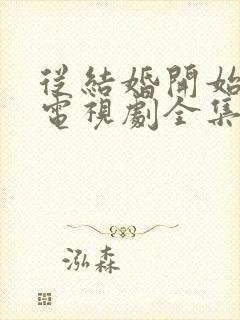 從結婚開始
電視劇全集
泓森